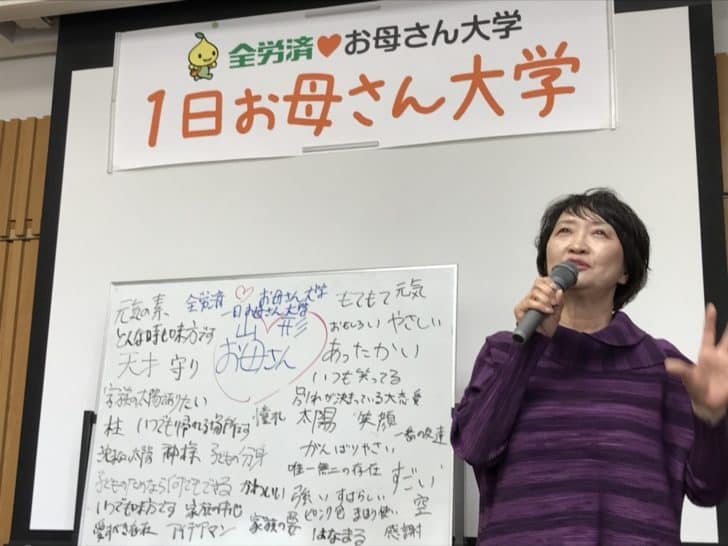 全労済♥お母さん大学
1日お母さん大学
元気の素
全労済♡お母さん大学
1日お母さん大学
もてもて 元気
どんな時も味方です
山形
お母さん
おもしろい やさしい
天才 守り
あったかい
いつも笑ってる
家族の太陽ありたい
別れが決まっている大恋愛
柱 いつでも帰れる場所です
憧れ
太陽 笑顔
一番の友達
太陽 神様 子どもの分身
がんばりやさん
唯一無二の存在
すごい
子どものためなら何でもできる かわいい
強い すばらしい
空
いつでも味方です
ピンク色 まほう使い
アイデアマン
家族の要
はなまる 感謝